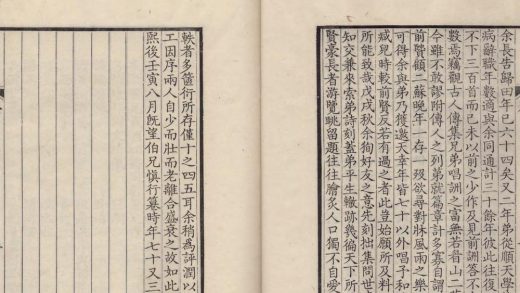 余長告歸田年已六十四矣又二年弟從順天學
病辭職年數適與余同通計三十餘年彼此往復
不下三百首而己未以前之少作及見前詶荅不
數焉竊觀古人傳集兄弟唱詶之富無若眉山二
今雖不敢謬附傳人之列弟就篇章計多寡自謂
前賢顧二蘇晚年一存一歿欲尋對牀風雨之樂
可得余與弟乃獲邀天幸年皆七十以外唱予和
臧兒時較前賢反若有過之者此豈始願所及料
所能致哉戊戌秋余徇好友之意先刻拙集問世
知交兼來索弟詩刻蓋弟平生轍跡幾徧天下所
賢豪長者游覽眺留題往往膾炙人口獨不自愛
軼者多篋衍所存僅十之四五耳余稍為評潤以
工因序兩人自少而壯而老離合盛衰之故如此
熙後壬寅八月既望伯兄慎行纂時年七十又三